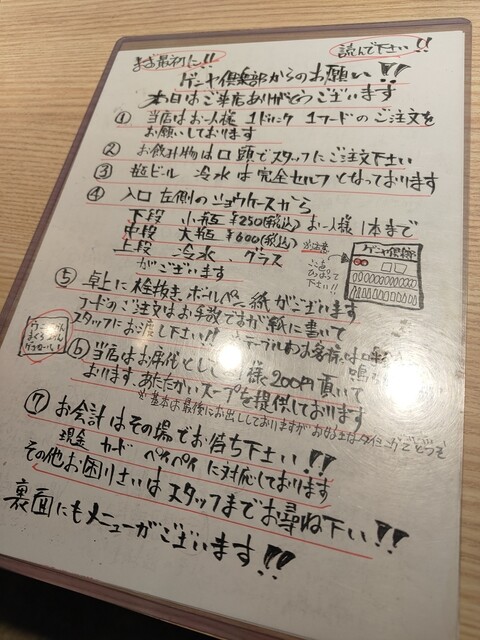 まず最初に!! 読んで下さい!!
ゲンヤ倶楽部からのお願い!!
本日はご来店ありがとうございます
① 当店はお一人様 1ドリンク 1フードのご注文を
お願いしております
② お飲み物は口頭でスタッフにご注文下さい
③ 瓶ビール 冷水は完全セルフとなっております
④ 入口左側のショウケースから
下段 小瓶 ¥250(税込) お一人様 1本まで
中段 大瓶 ¥600(税込)
上段 冷水、グラス
がございます
※注意
ここを
ひっぱって
下さい!!
ゲンヤ倶楽部
⑤ 卓上に栓抜き、ボールペン、紙がございます
フードのご注文はお手数ですが紙に書いて
スタッフにお渡し下さい!!
テーブルのお客様は
⑥ 当店はお席代として 様200円頂いて
おります、あたたかいスープを提供しております
※基本は最後にお出ししておりますが
⑦ お会計はその場でお待ち下さい!!
現金 カード ペイペイに対応しております
その他お困りさいはスタッフまでお尋ね下い!!
裏面にもメニューがございます!!